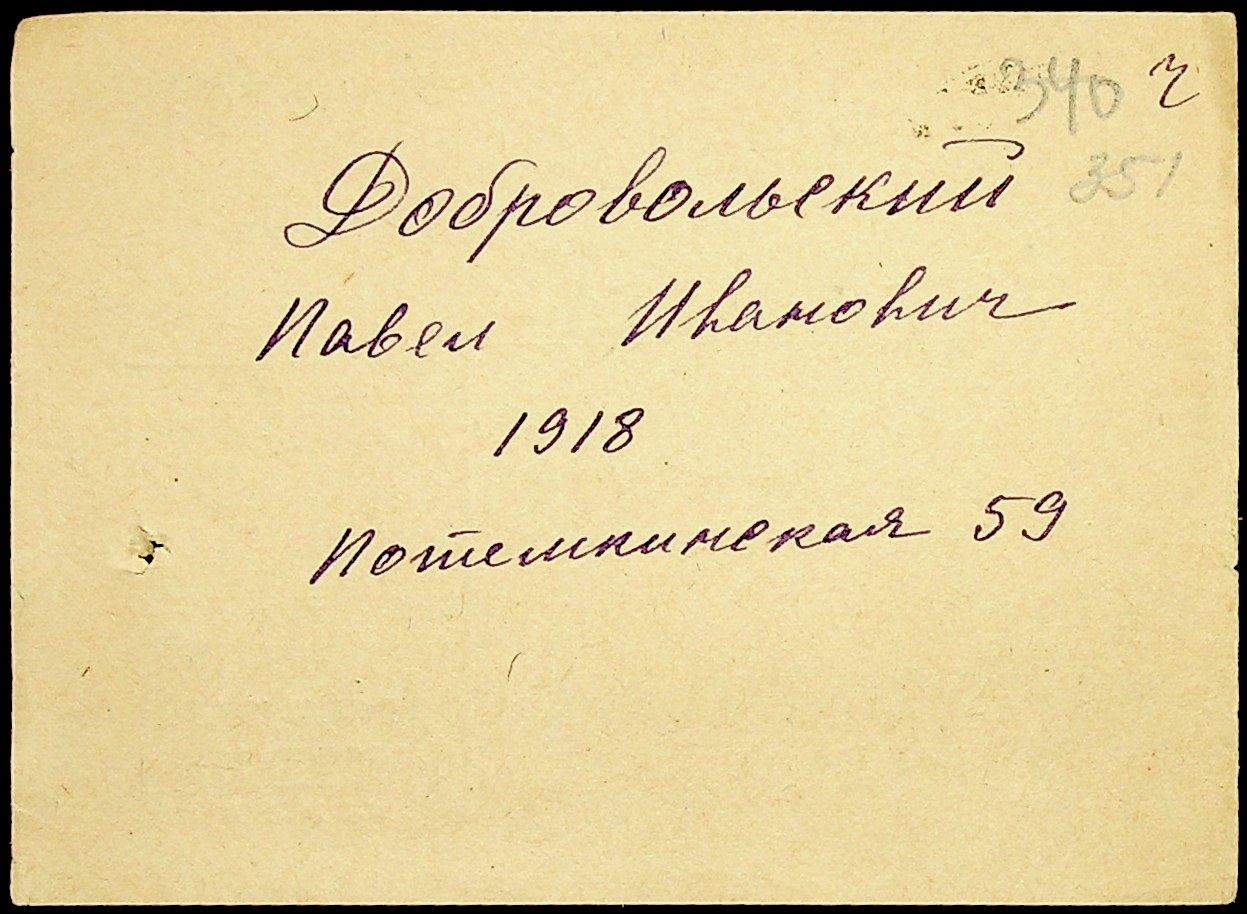 340 ч
351
Добровольский
Павел Иванович
1918
Потемкинская 59